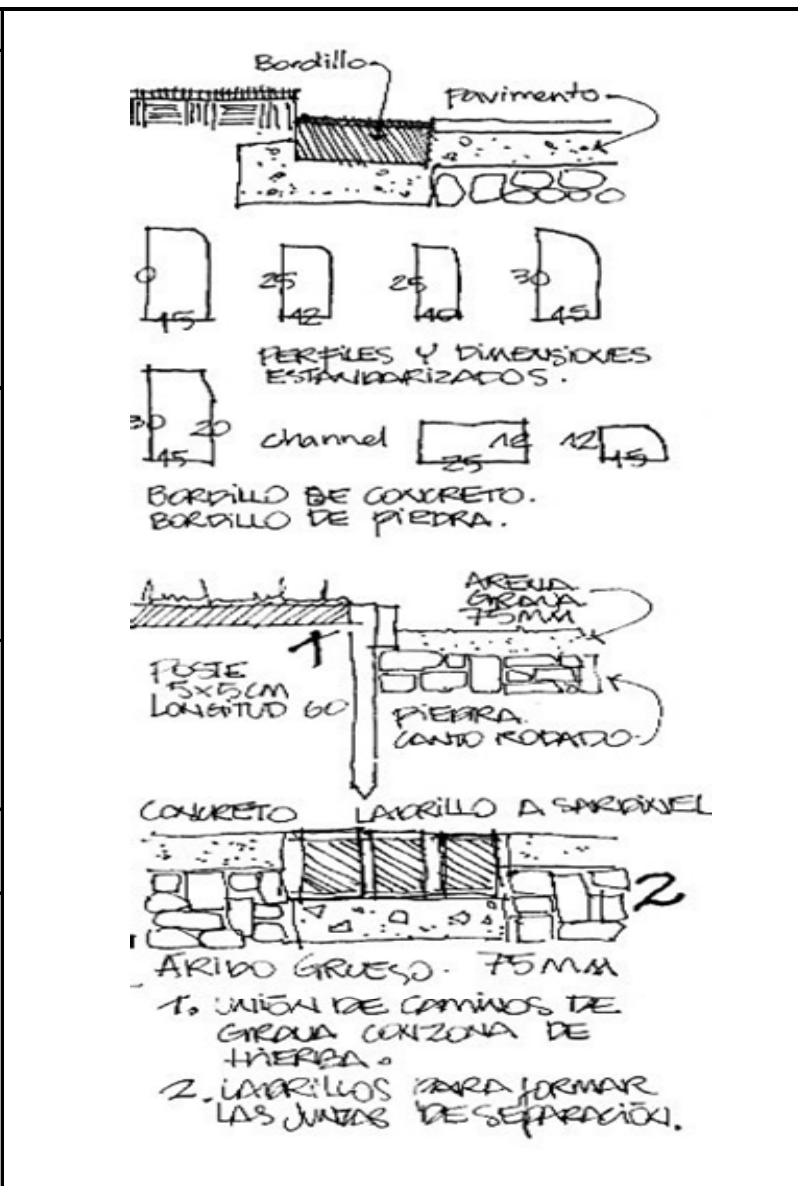 Bordillo
Pavimento
0
15
25
12
25
10
30
15
PERFILES Y DIMENSIONES
ESTANDARIZADOS.
30
20
15
channel
12
25
12
15
BORDILLO DE CONCRETO.
BORDILLO DE PIEDRA.
ARENA
GRAVA
75MM
1
POSTE
5x5CM
LONGITUD 60
PIEDRA
CANTO RODADO
CONCRETO
LADRILLO A SARDINEL
2
ARIDO GRUESO. 75MM
1. UNIÓN DE CAMINOS DE
GRAVA CON ZONA DE
HIERBA.
2. LADRILLOS PARA FORMAR
LAS JUNTAS DE SEPARACIÓN.